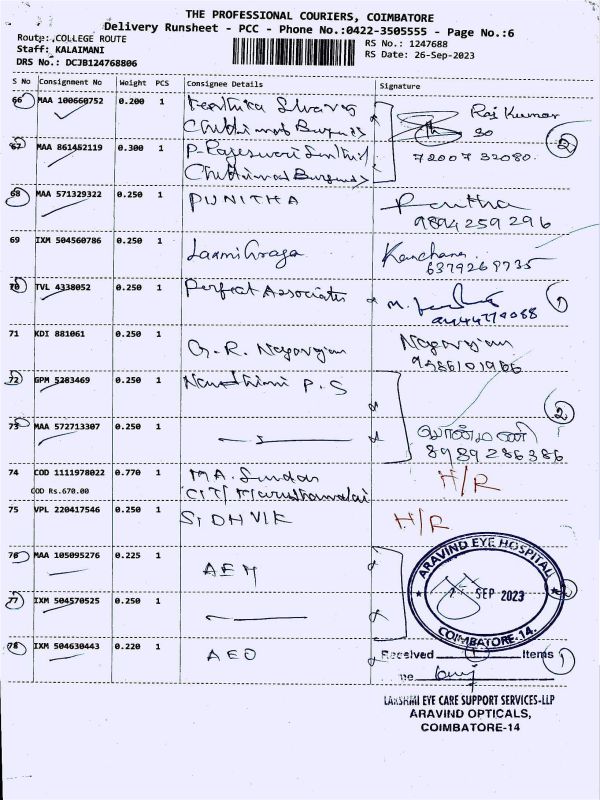 THE PROFESSIONAL COURIERS, COIMBATORE
Delivery Runsheet - PCC - Phone No.:0422-3505555 - Page No.:6
Route: .COLLEGE ROUTE
Staff: KALAIMANI
DRS No.: DCJB124768806
RS No.: 1247688
RS Date: 26-Sep-2023
S No Consignment No Weight PCS Consignee Details Signature
66 MAA 100660752 0.200 1
Raj Kumar
67 MAA 861452119 0.300 1
72007 32080
68 MAA 571329322 0.250 1 PUNITHA
9894259296
69 IXM 504560786 0.250 1
Kanchana
6379269735
70 TVL 4338052 0.250 1 Perfect Associates
1
71 KDI 881061 0.250 1 G. R. Nagarajan Nagarajan
72 GPM 5283469 0.250 1 P.S
2
73 MAA 572713307 0.250 1
8989286386
74 COD 1111978022 0.770 1 M.A. Sundar H/R
COD Rs.670.00 CIT/ Maruthamalai
75 VPL 220417546 0.250 1 SIDHVIK H/R
76 MAA 105095276 0.225 1 AEH
ARAVIND EYE HOSPITAL
SEP 2023
COIMBATORE-14.
77 IXM 504570525 0.250 1
78 IXM 504630443 0.220 1 AEO
Received 1 Items 1
LAKSHMI EYE CARE SUPPORT SERVICES-LLP
ARAVIND OPTICALS,
COIMBATORE-14